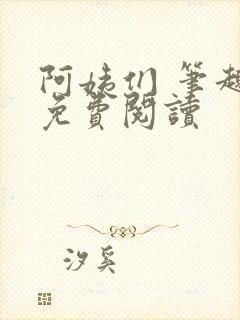 阿姨们 筆趣
免費閱讀
汐奚